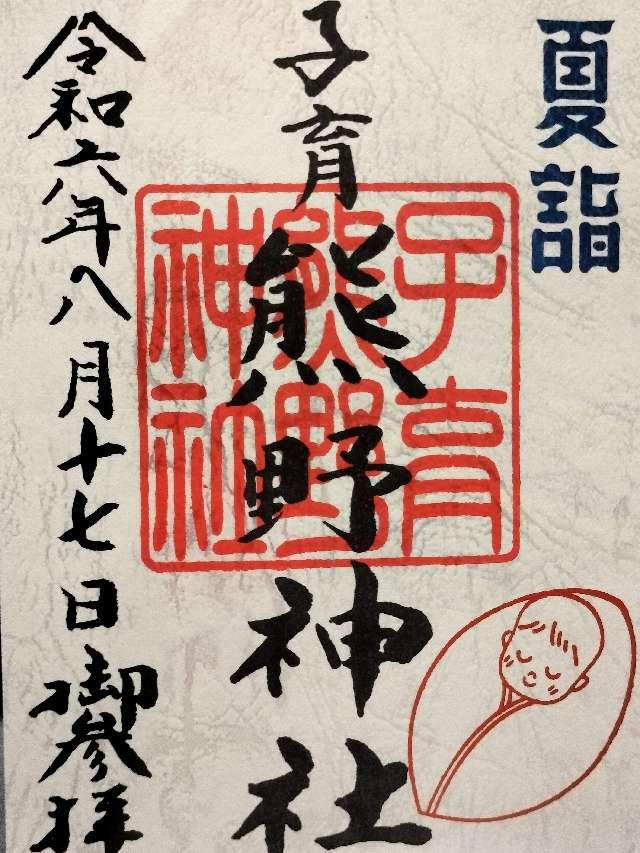 夏詣
子育熊野神社
子育熊野神社
令和六年八月十七日御参拝